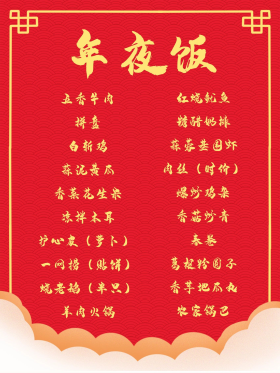 年夜饭
五香牛肉 红烧鱿鱼
拼盘 糖醋奶排
白斩鸡 蒜蓉基围虾
蒜泥黄瓜 肉丝（时价）
香菜花生米 爆炒鸡杂
凉拌木耳 香菇炒青
护心皮（萝卜） 春卷
一网捞（贴饼） 葛根粉圆子
烧老鸡（半只） 香芋地瓜丸
羊肉火锅 农家锅巴